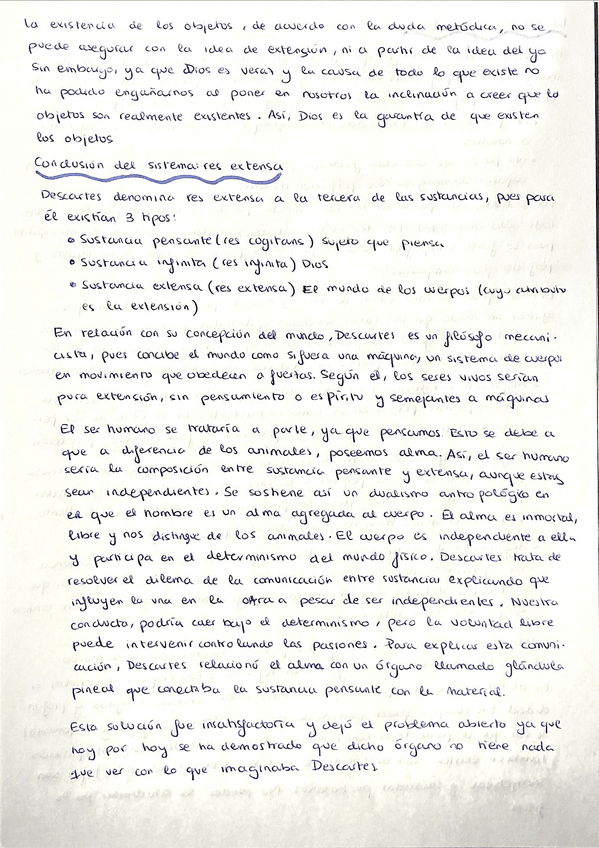 La existencia de los objetos, de acuerdo con la duda metódica, no se
puede asegurar con la idea de extensión, ni a partir de la idea del yo
Sin embargo, ya que Dios es veraz y la causa de todo lo que existe no
ha podido engañarnos al poner en nosotros la inclinación a creer que lo
objetos son realmente existentes. Así, Dios es la garantía de que existen
los objetos
Conclusión del sistema: res extensa
Descartes denomina res extensa a la tercera de las sustancias, pues para
él existían 3 tipos:
• Sustancia pensante (res cogitans) Sujeto que piensa
• Sustancia infinita (res infinita) Dios
• Sustancia extensa (res extensa) El mundo de los cuerpos (cuyo atributo
es la extensión)
En relación con su concepción del mundo, Descartes es un filósofo mecani-
cista, pues concibe el mundo como si fuera una máquina, un sistema de cuerpos
en movimiento que obedecen a fuerzas. Según él, los seres vivos serían
pura extensión, sin pensamiento o espíritu y semejantes a máquinas
El ser humano se trataría a parte, ya que pensamos. Esto se debe a
que a diferencia de los animales, poseemos alma. Así, el ser humano
sería la composición entre sustancia pensante y extensa, aunque estas
sean independientes. Se sostiene así un dualismo antropológico en
el que el hombre es un alma agregada al cuerpo. El alma es inmortal,
libre y nos distingue de los animales. El cuerpo es independiente a ella
y participa en el determinismo del mundo físico. Descartes trata de
resolver el dilema de la comunicación entre sustancias explicando que
influyen la una en la otra a pesar de ser independientes. Nuestra
conducta, podría caer bajo el determinismo, pero la voluntad libre
puede intervenir controlando las pasiones. Para explicar esta comuni-
cación, Descartes relacionó el alma con un órgano llamado glándula
pineal que conectaba la sustancia pensante con la material.
Esta solución fue insatisfactoria y dejó el problema abierto ya que
hoy por hoy se ha demostrado que dicho órgano no tiene nada
que ver con lo que imaginaba Descartes